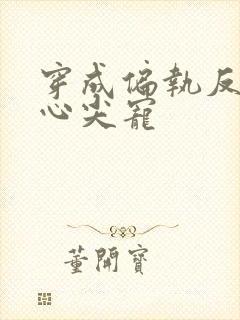 穿成偏執反
心尖寵
董開寶